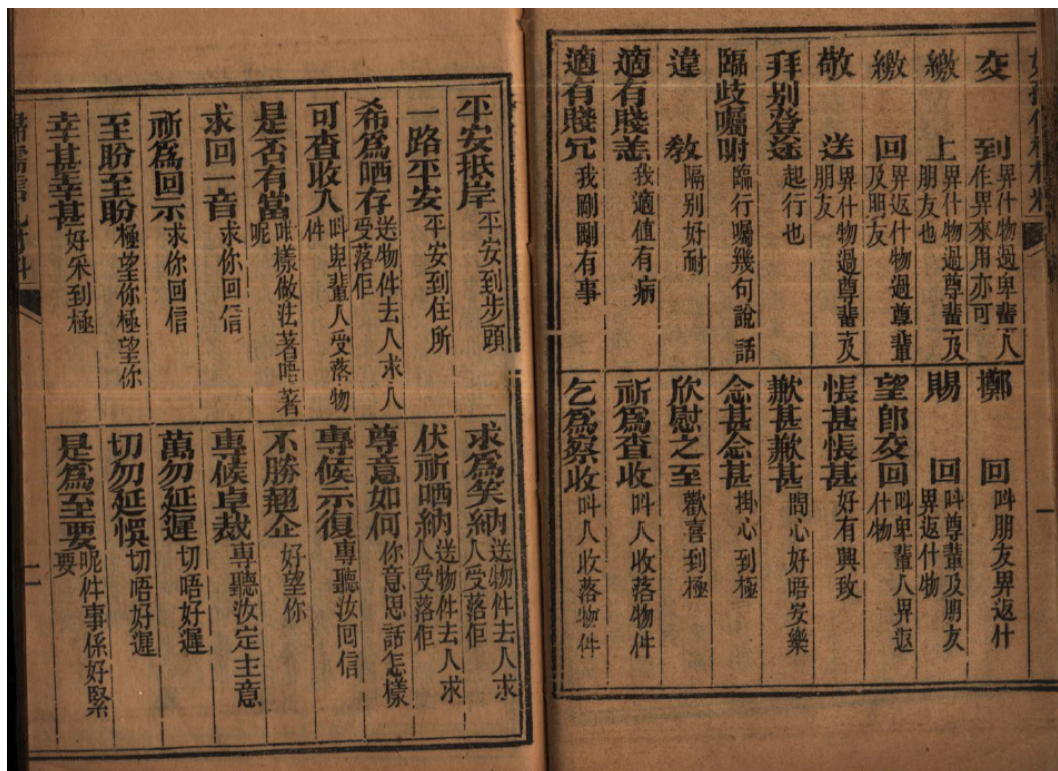 婦孺信札材料
一
交到 畀什物過卑輩人作畀來用亦可
繳上 畀什物過尊輩及朋友也
繳回 畀返什物過尊輩及朋友
敬送 畀什物過尊輩及朋友
拜別登途 起行也
臨歧囑咐 臨行囑幾句說話
違教 隔別好耐
適有賤恙 我適值有病
適有賤冗 我剛剛有事
擲回 叫朋友畀返什
賜回 叫尊輩及朋友畀返什物
望卽交回 叫卑輩人畀返什物
悵甚悵甚 好有興致
歉甚歉甚 問心好唔安樂
念甚念甚 掛心到極
欣慰之至 歡喜到極
祈爲查收 叫人收落物件
乞爲察收 叫人收落物件
平安抵岸 平安到步頭
一路平安 平安到住所
希爲哂存 送物件去人求人受落佢
可查收入 叫卑輩人受落物件
是否有當 咁樣做法著唔著呢
求回一音 求你回信
祈爲回示 求你回信
至盼至盼 極望你極望你
幸甚幸甚 好采到極
求爲笑納 送物件去人求人受落佢
伏祈哂納 送物件去人求人受落佢
尊意如何 你意思話怎樣
專候示復 專聽汝回信
不勝翹企 好望你
專候卓裁 專聽汝定主意
萬勿延遲 切唔好遲
切勿延悞 切唔好遲
是爲至要 呢件事係好緊要
婦孺信札材料
二